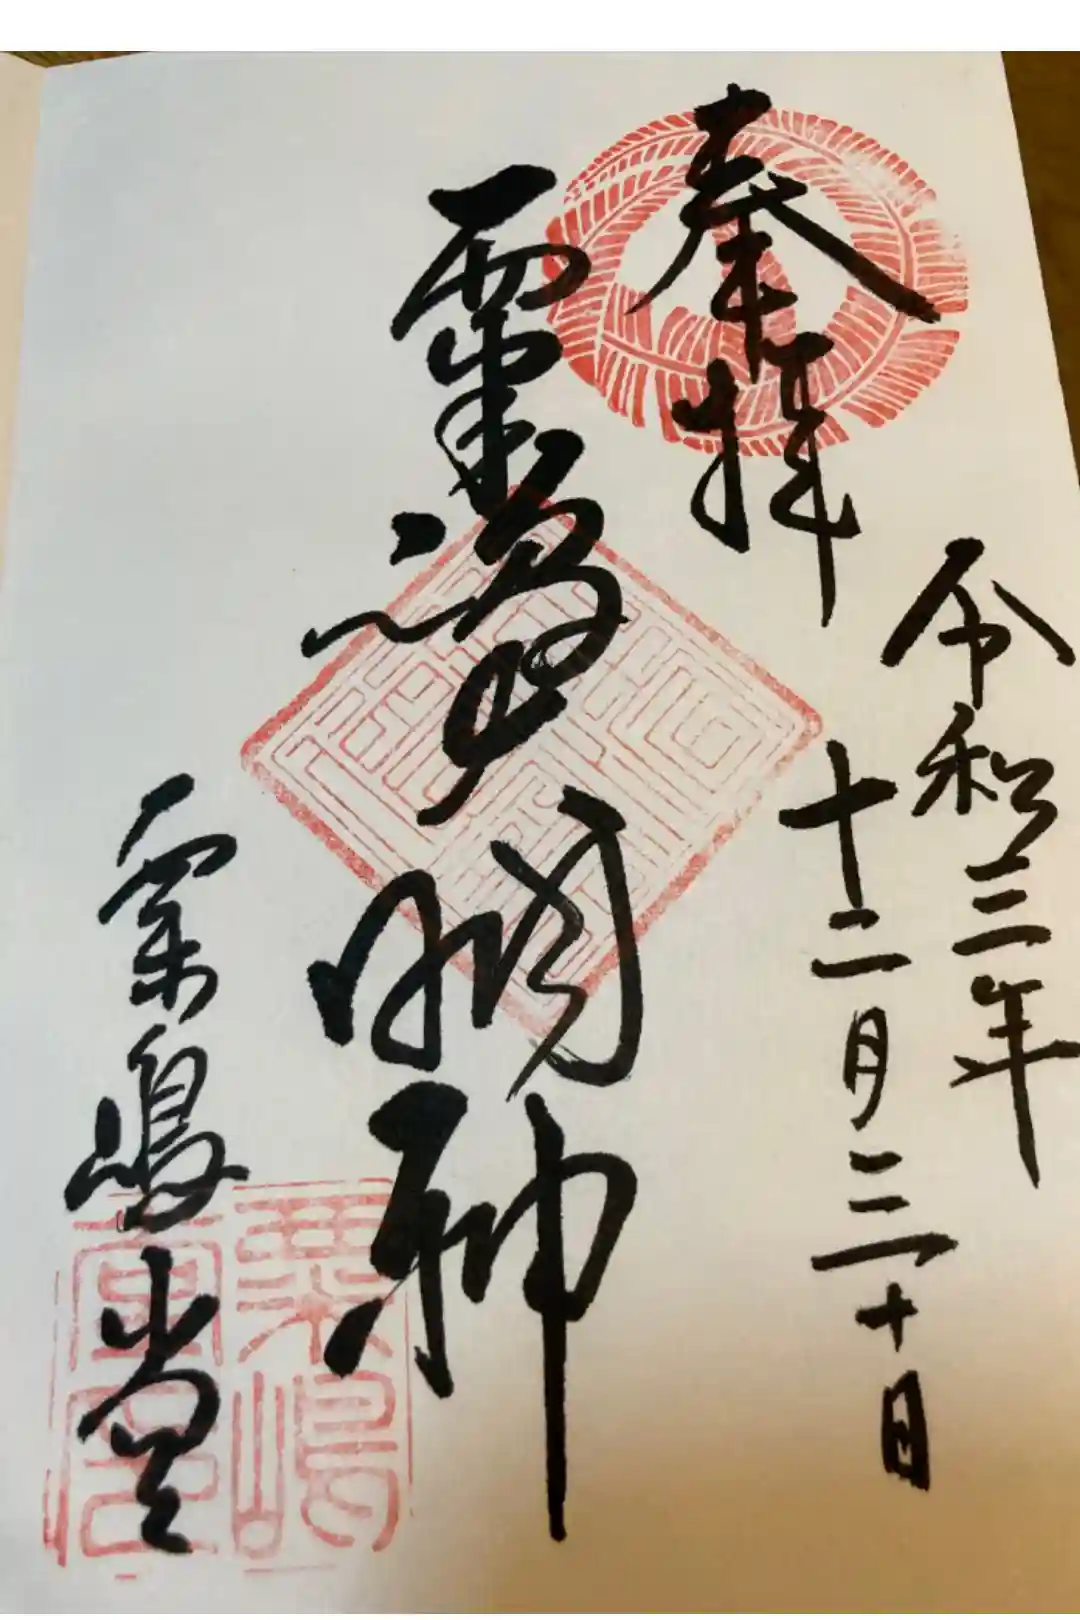 奉拝
令和三年
十二月三十日
粟嶋明神
粟嶋堂
粟嶋